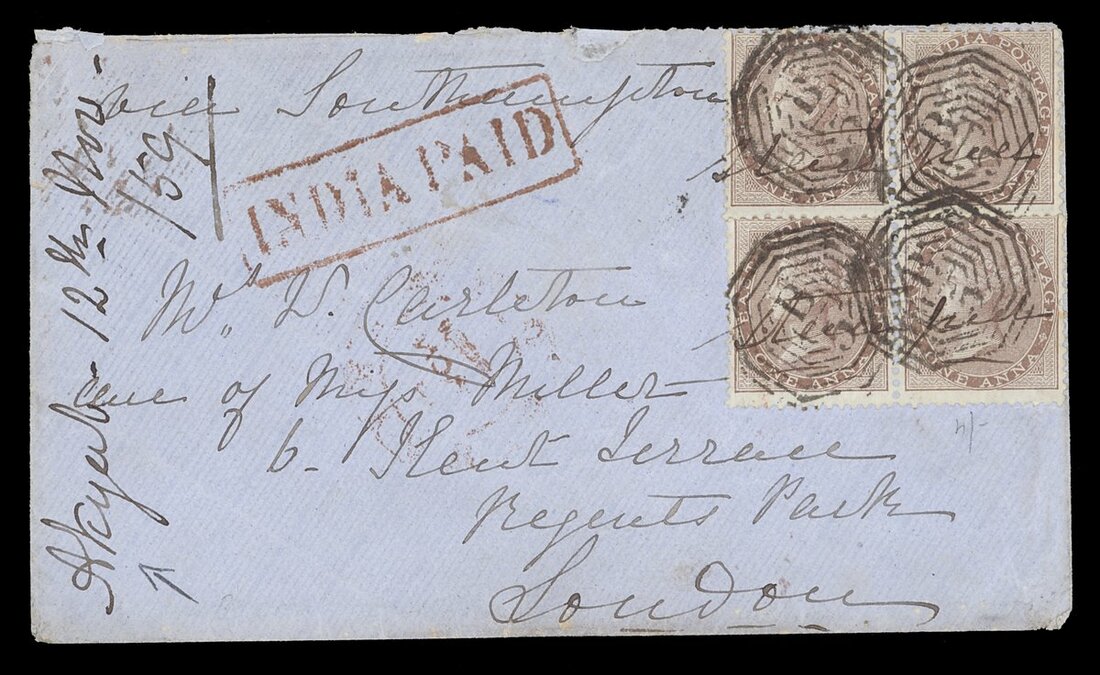 via Southampton
INDIA PAID
Mrs. D. Carleton
care of Miss Miller
6. Kent Terrace
Regents Park
London
Akyab - 12th Nov -
/59
INDIA POSTAGE
ONE ANNA
INDIA POSTAGE
ONE ANNA
ONE ANNA
POSTAGE
ONE ANNA
B
B
B
B
Steel
Steel
4/-